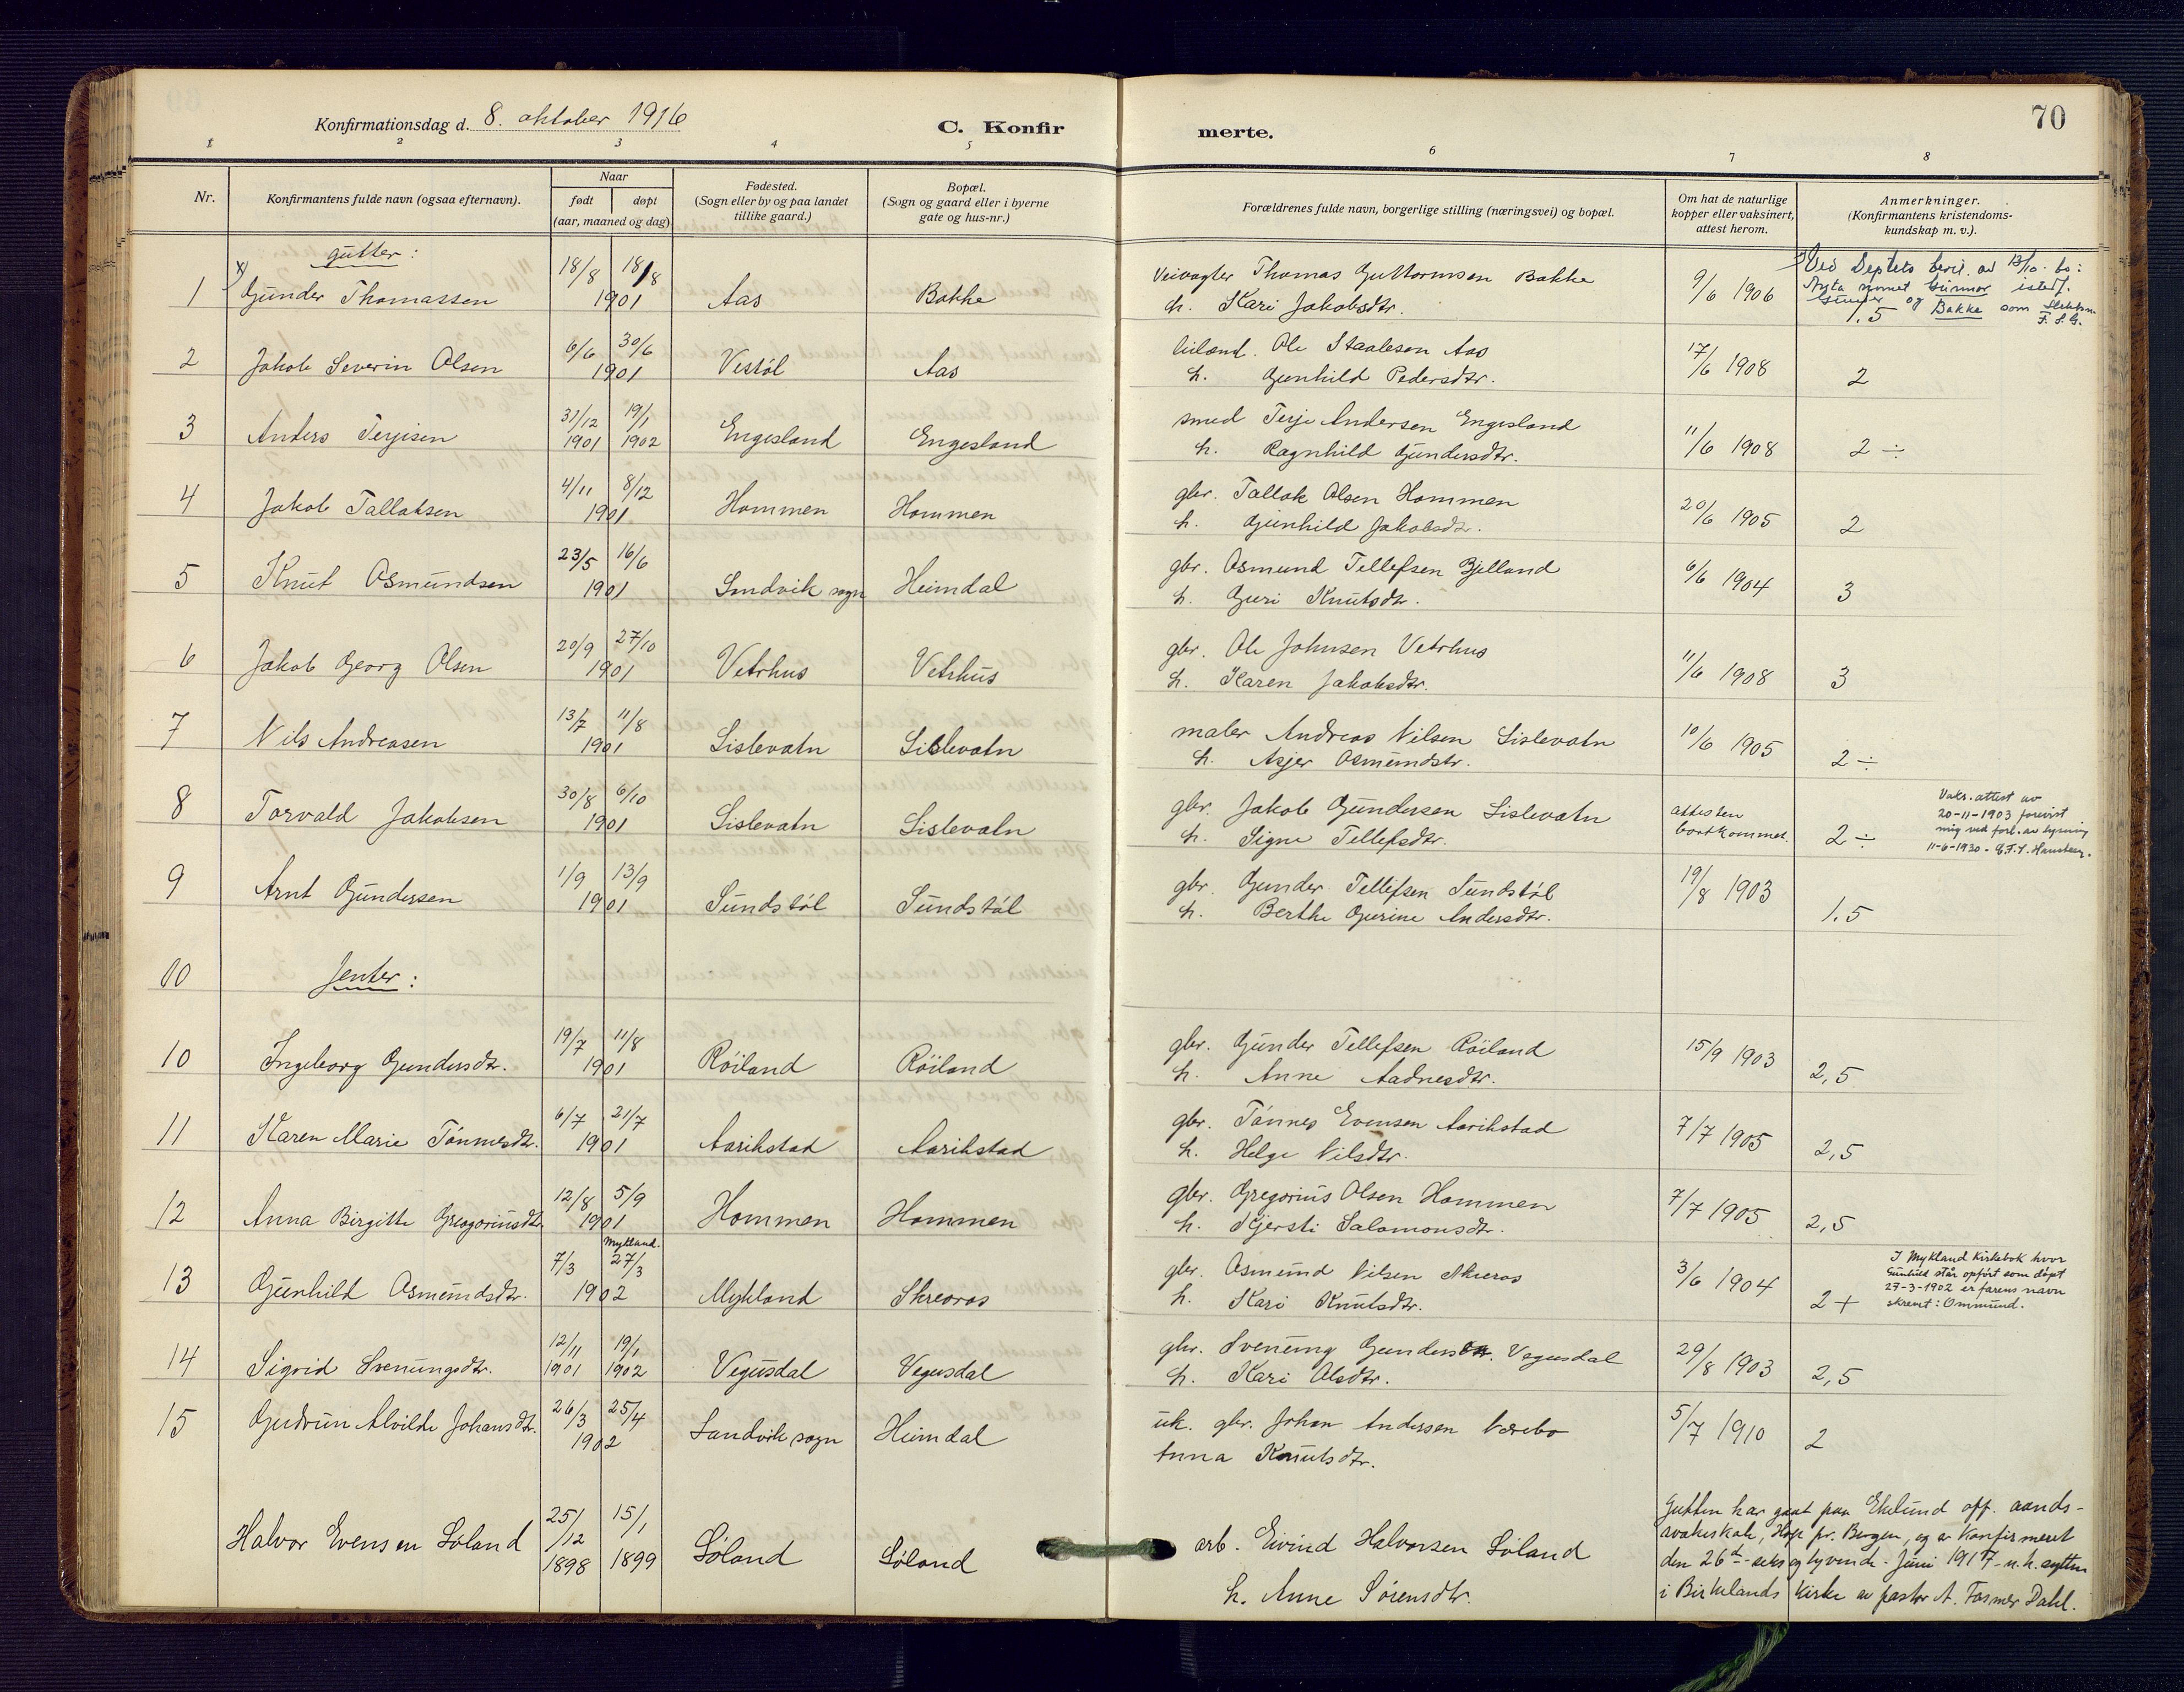 70
Konfirmationsdag d. 8. oktober 1916
C. Konfirmerte.
1 2 3 4 5 6 7 8
Nr.
Konfirmantens fulde navn (ogsaa efternavn).
Naar
født døpt
(aar, maaned og dag)
Fødested.
(Sogn eller by og paa landet
tillike gaard.)
Bopæl.
(Sogn og gaard eller i byerne
gate og hus-nr.)
Forældrenes fulde navn, borgerlige stilling (næringsvei) og bopæl.
Om hat de naturlige
kopper eller vaksinert,
attest herom.
Anmerkninger.
(Konfirmantens kristendoms-
kundskap m. v.).
gutter:
1 Gunder Thomassen 18/8 18/8 1901 Aas Bakke Veivogter Thomas Guttormsen Bakke 9/6 1906 1.5
h. Kari Jakobsdtr.
Ved Deptets bevil. av 13/10
navnet Gunnar istedf.
Gunder og Bakke som
2 Jakob Severin Olsen 6/6 30/6 1901 Vestøl Aas Ole Staalesen Aas 17/6 1908 2
h. Gunhild Pedersdtr.
3 Anders Terjesen 31/12 1901 19/1 1902 Engesland Engesland smed Terje Andersen Engesland 11/6 1908 2 ÷
h. Ragnhild Gundersdtr.
4 Jakob Tallaksen 4/11 8/12 1901 Hommen Hommen gbr. Tallak Olsen Hommen 20/6 1905 2
h. Gunhild Jakobsdtr.
5 Knut Osmundsen 23/5 16/6 1901 Landvik sogn Heimdal gbr. Osmund Tellefsen Bjelland 6/6 1904 3
h. Guri Knutsdtr.
6 Jakob Georg Olsen 20/9 27/10 1901 Vetrhus Vetrhus gbr. Ole Johnsen Vetrhus 11/6 1908 3
h. Karen Jakobsdtr.
7 Nils Andreasen 13/7 11/8 1901 Lislevatn Lislevatn maler Andreas Nilsen Lislevatn 10/6 1905 2 ÷
h. Asjer Osmundstr.
8 Torvald Jakobsen 30/8 6/10 1901 Lislevatn Lislevatn gbr. Jakob Gundersen Lislevatn attesten bortkommet. 2 ÷
h. Signe Tellefsdtr.
Vaks. attest av
20-11-1903 forevist
mig ved forl. av lysning
11-6-1930
9 Arnt Gundersen 1/9 13/9 1901 Sundstøl Sundstøl gbr. Gunder Tellefsen Sundstøl 19/8 1903 1.5
h. Berthe Gurine Andersdtr.
10 Jenter:
10 Ingeborg Gundersdtr. 19/7 11/8 1901 Røiland Røiland gbr. Gunder Tellefsen Røiland 15/9 1903 2,5
h. Anne Aadnesdtr.
11 Karen Marie Tønnesdtr. 6/7 21/7 1901 Aarikstad Aarikstad gbr. Tønnes Evensen Aarikstad 7/7 1905 2,5
h. Helge Nilsdtr.
12 Anna Birgitte Gregoriusdtr. 12/8 5/9 1901 Hommen Hommen gbr. Gregorius Olsen Hommen 7/7 1905 2,5
h. Kjersti Salomonsdtr.
13 Gunhild Osmundsdtr. 7/3 Mykland. 27/3 1902 Mykland Skreoros gbr. Osmund Nilsen 3/6 1904 2 +
h. Kari Knutsdtr.
I Mykland Kirkebok hvor
Gunhild står opført som døpt
27-3-1902 er farens navn
skrevet: Ommund.
14 Sigrid Svenungsdtr. 12/11 1901 19/1 1902 Vegusdal Vegusdal gbr. Svenung Gundersen. Vegusdal 29/8 1903 2,5
h. Kari Olsdtr.
15 Gudrun Alvilde Johansdtr. 26/3 25/4 1902 Landvik sogn Heimdal uk. gbr. Johan Andersen 5/7 1910 2
Anna Knutsdtr.
Halvor Evensen Løland 25/12 1898 15/1 1899 Løland Løland arb. Eivind Halvorsen Løland
h. Anne Sørensdtr.
Gutten har gaat paa Eklund off. aands-
svakeskole, Hop pr. Bergen, og er konfirmeret
den 26de - seks og tyvende - Juni 1917 - n.h. sytten
i Birkelands kirke av pastor A. Fasmer Dahl.